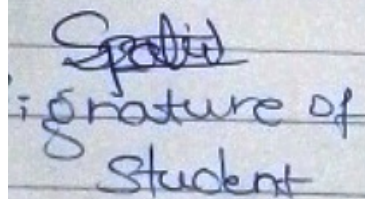 ignature of
Student